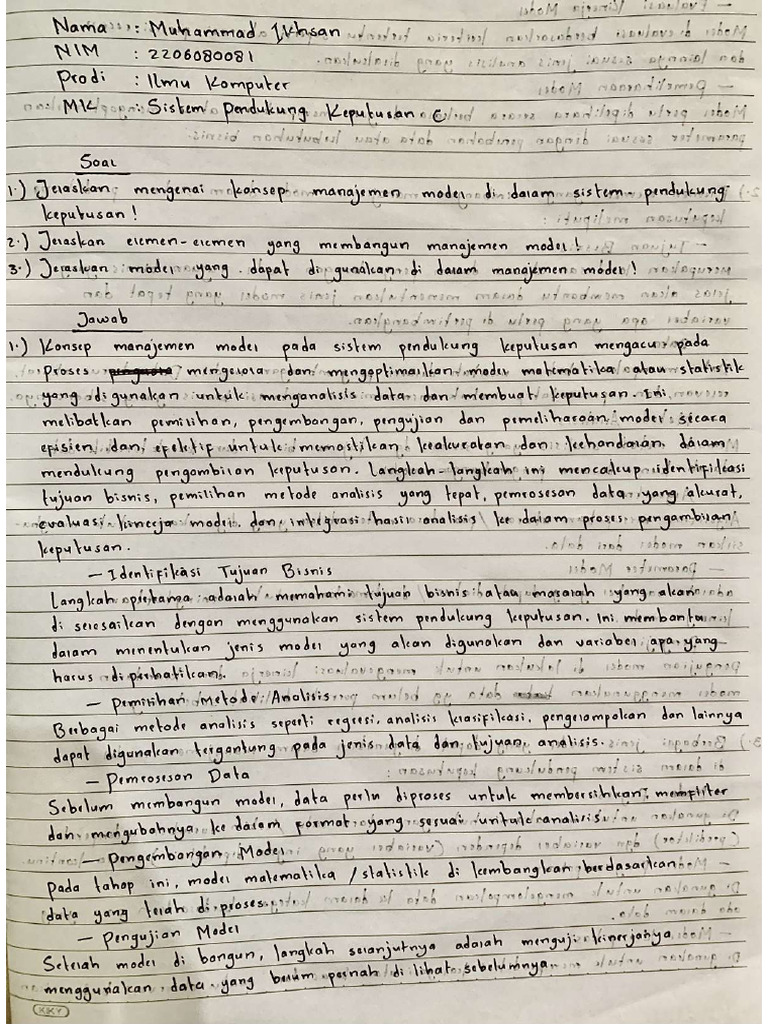 Nama : Muhammad Ikhsan
NIM : 2206080081
Prodi : Ilmu Komputer
MK : Sistem Pendukung Keputusan C
Soal
1.) Jelaskan mengenai konsep manajemen model di dalam sistem pendukung
keputusan!
2.) Jelaskan elemen-elemen yang membangun manajemen model!
3.) Jelaskan model yang dapat digunakan di dalam manajemen model!
Jawab
1.) Konsep manajemen model pada sistem pendukung keputusan mengacu pada
proses mengelola dan mengoptimalkan model matematika atau statistik
yang digunakan untuk menganalisis data dan membuat keputusan. Ini
melibatkan pemilihan, pengembangan, pengujian dan pemeliharaan model secara
efisien dan efektif untuk memastikan keakuratan dan kehandalan dalam
mendukung pengambilan keputusan. Langkah-langkah ini mencakup identifikasi
tujuan bisnis, pemilihan metode analisis yang tepat, pemrosesan data yang akurat,
evaluasi kinerja model dan integrasi hasil analisis ke dalam proses pengambilan
keputusan.
- Identifikasi Tujuan Bisnis
Langkah pertama adalah memahami tujuan bisnis atau masalah yang akan
di selesaikan dengan menggunakan sistem pendukung keputusan. Ini membantu
dalam menentukan jenis model yang akan digunakan dan variabel apa yang
harus diperhatikan.
- Pemilihan Metode Analisis
Berbagai metode analisis seperti regresi, analisis klasifikasi, pengelompokan dan lainnya
dapat digunakan tergantung pada jenis data dan tujuan analisis.
- Pemrosesan Data
Sebelum membangun model, data perlu diproses untuk membersihkan, memfilter
dan mengubahnya ke dalam format yang sesuai untuk analisis
- Pengembangan Model
Pada tahap ini, model matematika / statistik di kembangkan berdasarkan
data yang telah di proses
- Pengujian Model
Setelah model di bangun, langkah selanjutnya adalah menguji kinerjanya
menggunakan data yang belum pernah di lihat sebelumnya
KIKY